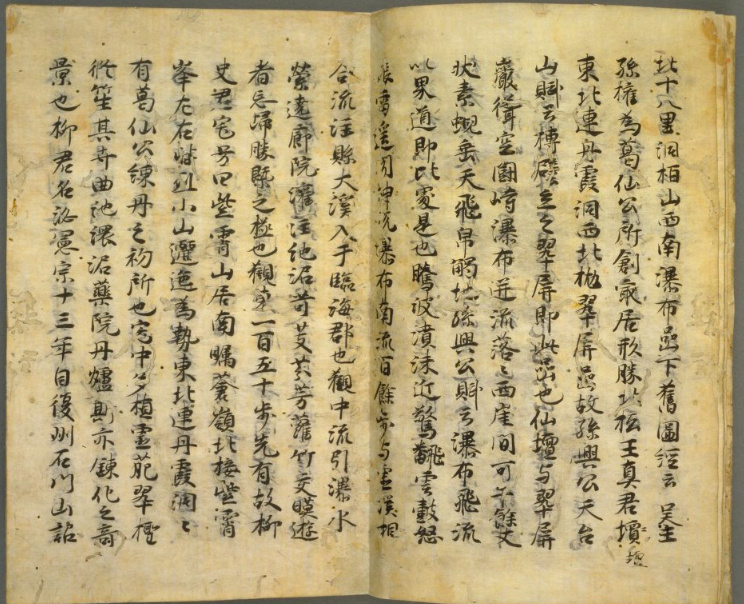 北十八里洞柏山西南瀑布巖下舊圖經云吳主
孫權為葛仙公所創最居形勝北松王真君壇
東北連丹霞洞西北抛翠屏巖故孫興公天台
山賦云搏壁立之翠屏即此巖也仙壇与翠屏
巖聳空闘峙瀑布迸流落之西崖間可千餘丈
状素蜺垂天飛帛觸地孫興公賦云瀑布飛流
以界道即此處是也騰波濆沫近驚飜雲鼓怒
振雷遥聞神悦瀑布南流百餘歩与霊溪相
合流注縣大溪入于臨海郡也觀中流引瀑水
縈遶廊院灌注池沼苛芰芬芳蘿竹交暎遊
者忘歸勝既之極也觀東一百五十歩先有故柳
史君宅号曰紫霄山居南矚蒼嶺北接紫霄
峯左右列小山邐迤為勢東北連丹霞洞々
有葛仙公練丹之初所也宅中多植霊葩翠檉
笙其奇曲池澴沼藥院丹爐則亦錬化之奇
景也柳君名泌憲宗十三年自復州石門山詔